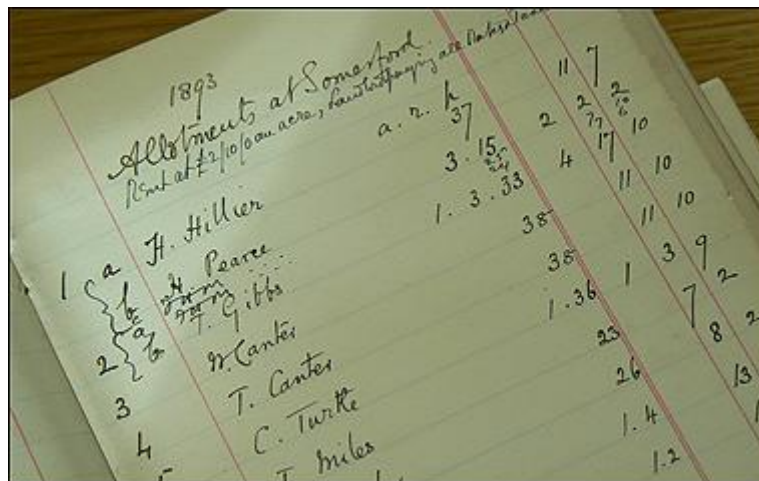 1893
Allotments at Somerford.
Rent at £2/10/0 an acre, Landlord paying all Rates & Taxes
a. r. p
1 { a H. Hillier 37 11 7
b H Pearce 3.15 2 2 2
c
2 { a T. Gibbs 1.3.33 4 17 10
b
3 W. Canter 38 11 10
4 T. Canter 38 11 10
C. Turtle 1.36 1 3 9
T. Miles 23 7 2
26 8 2
1.4 13
1.2